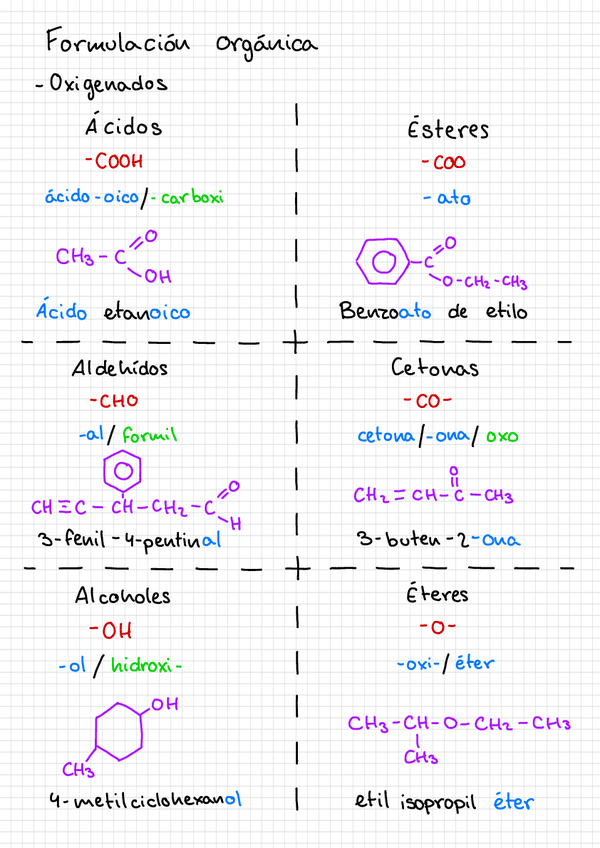 Formulación orgánica
- Oxigenados
Ácidos
-COOH
ácido -oico/-carboxi
CH3 - C
O
OH
Ácido etanoico
Ésteres
-COO
-ato
C
O
O-CH2-CH3
Benzoato de etilo
Aldehídos
-CHO
-al/ formil
CH≡C-CH-CH2-C
O
H
3-fenil-4-pentinal
Cetonas
-CO-
cetona/-ona/oxo
O
CH2=CH-C-CH3
3-buten-2-ona
Alcoholes
-OH
-ol / hidroxi-
OH
CH3
4-metilciclohexanol
Éteres
-O-
-oxi-/éter
CH3-CH-O-CH2-CH3
CH3
etil isopropil éter